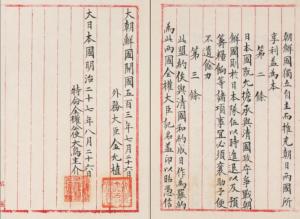 朝鮮國獨立自主而推充朝日兩國所
享利益爲本
第二條
日本國既允擔承與清國攻守爭戰朝
鮮國則於日本隊伍以時進退以及預
籌糧餉等諸項事宜必須襄助予便
不遺餘力
第三條
此盟約俟與清國和約成日作爲罷約
爲此兩國全權大臣記名蓋印以昭憑信
大朝鮮國開國五百三年七月二十六日
外務大臣金允植
大日本國明治二十七年八月二十六日
特命全權公使大鳥圭介